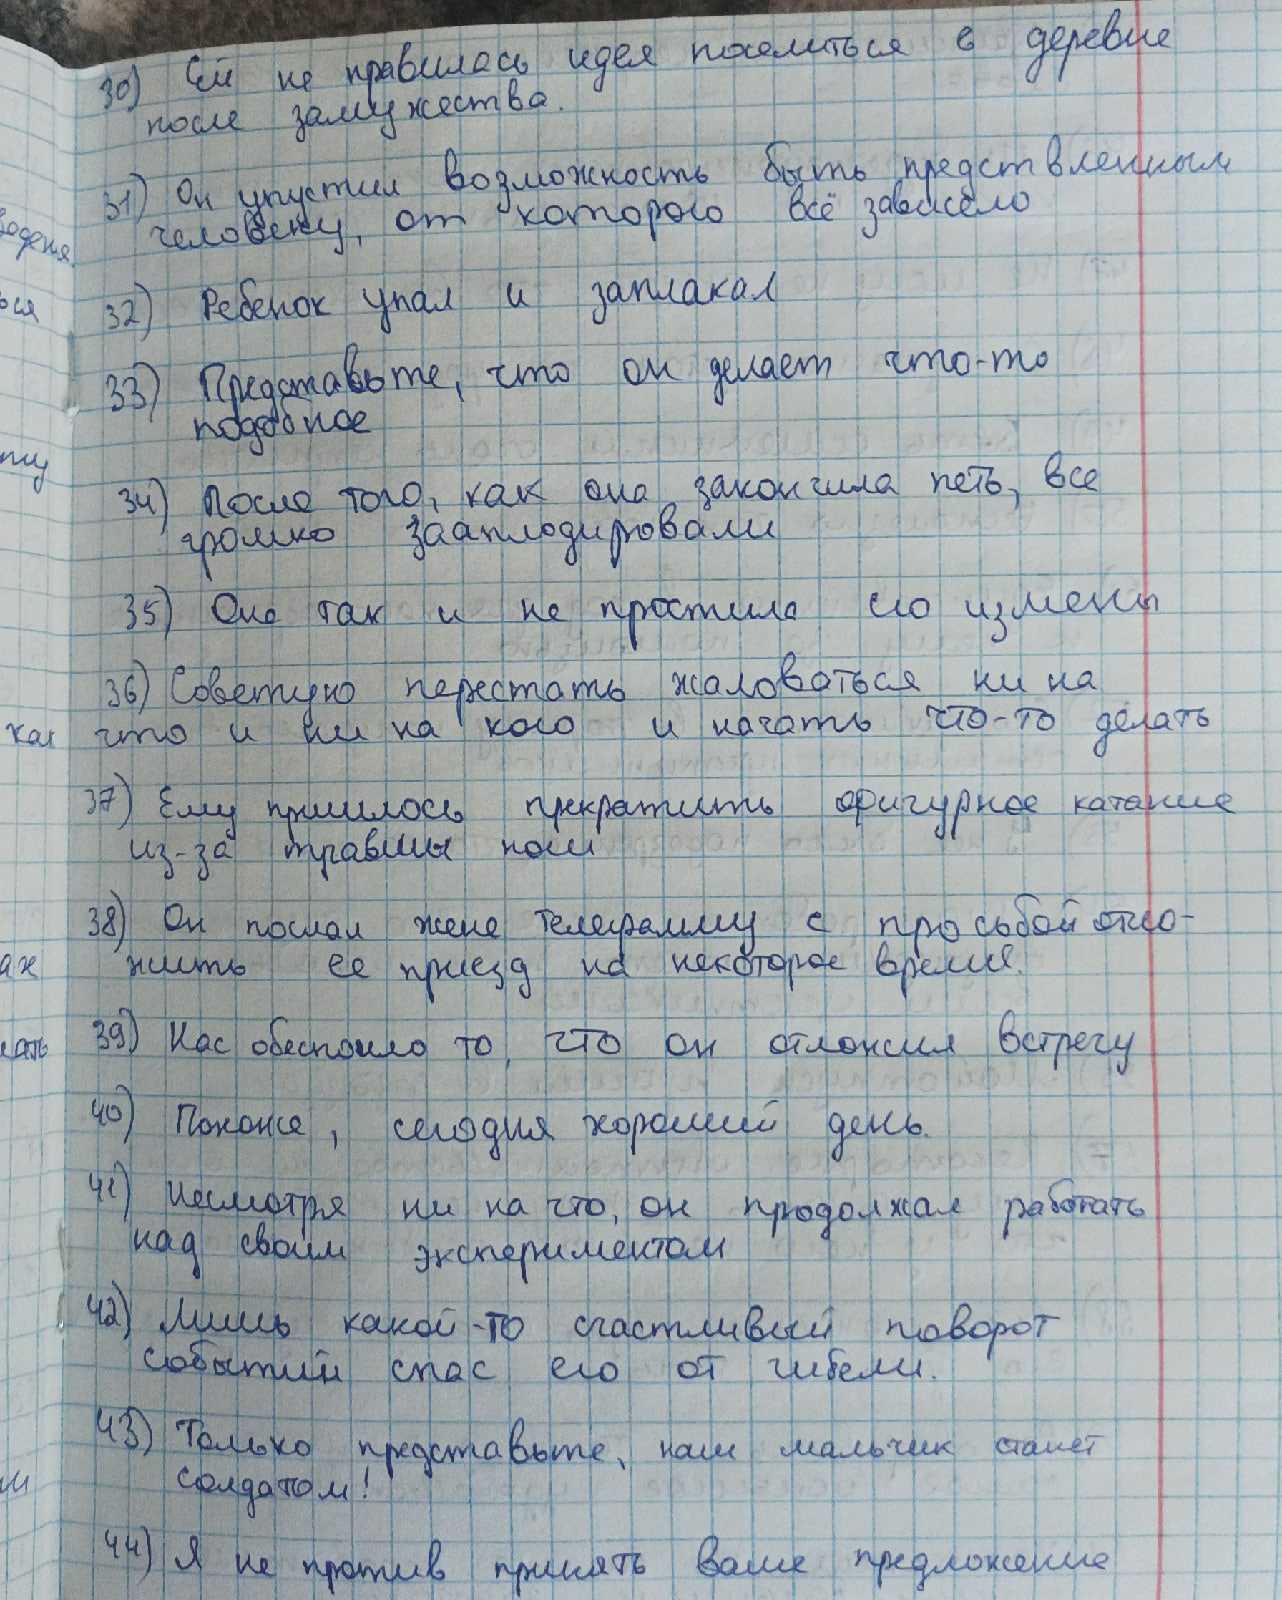 30) Ей не нравилась идея поселиться в деревне
после замужества.
31) Он упустил возможность быть предствленным
человеку, от которого всё зависело
32) Ребенок упал и заплакал
33) Представьте, что он делает что-то
подобное
34) После того, как она закончила петь, все
громко зааплодировали
35) Она так и не простила его измены
36) Советую перестать жаловаться ни на
что и ни на кого и начать что-то делать
37) Ему пришлось прекратить фигурное катание
из-за травмы ноги
38) Он послал жене телеграмму с просьбой отло-
жить ее приезд на некоторое время.
39) Нас обеспоило то, что он отложил встречу
40) Похоже, сегодня хороший день.
41) Несмотря ни на что, он продолжал работать
над своим экспериментом
42) Лишь какой-то счастливый поворот
событий спас его от гибели.
43) Только представьте, наш мальчик станет
солдатом!
44) Я не против принять ваше предложение